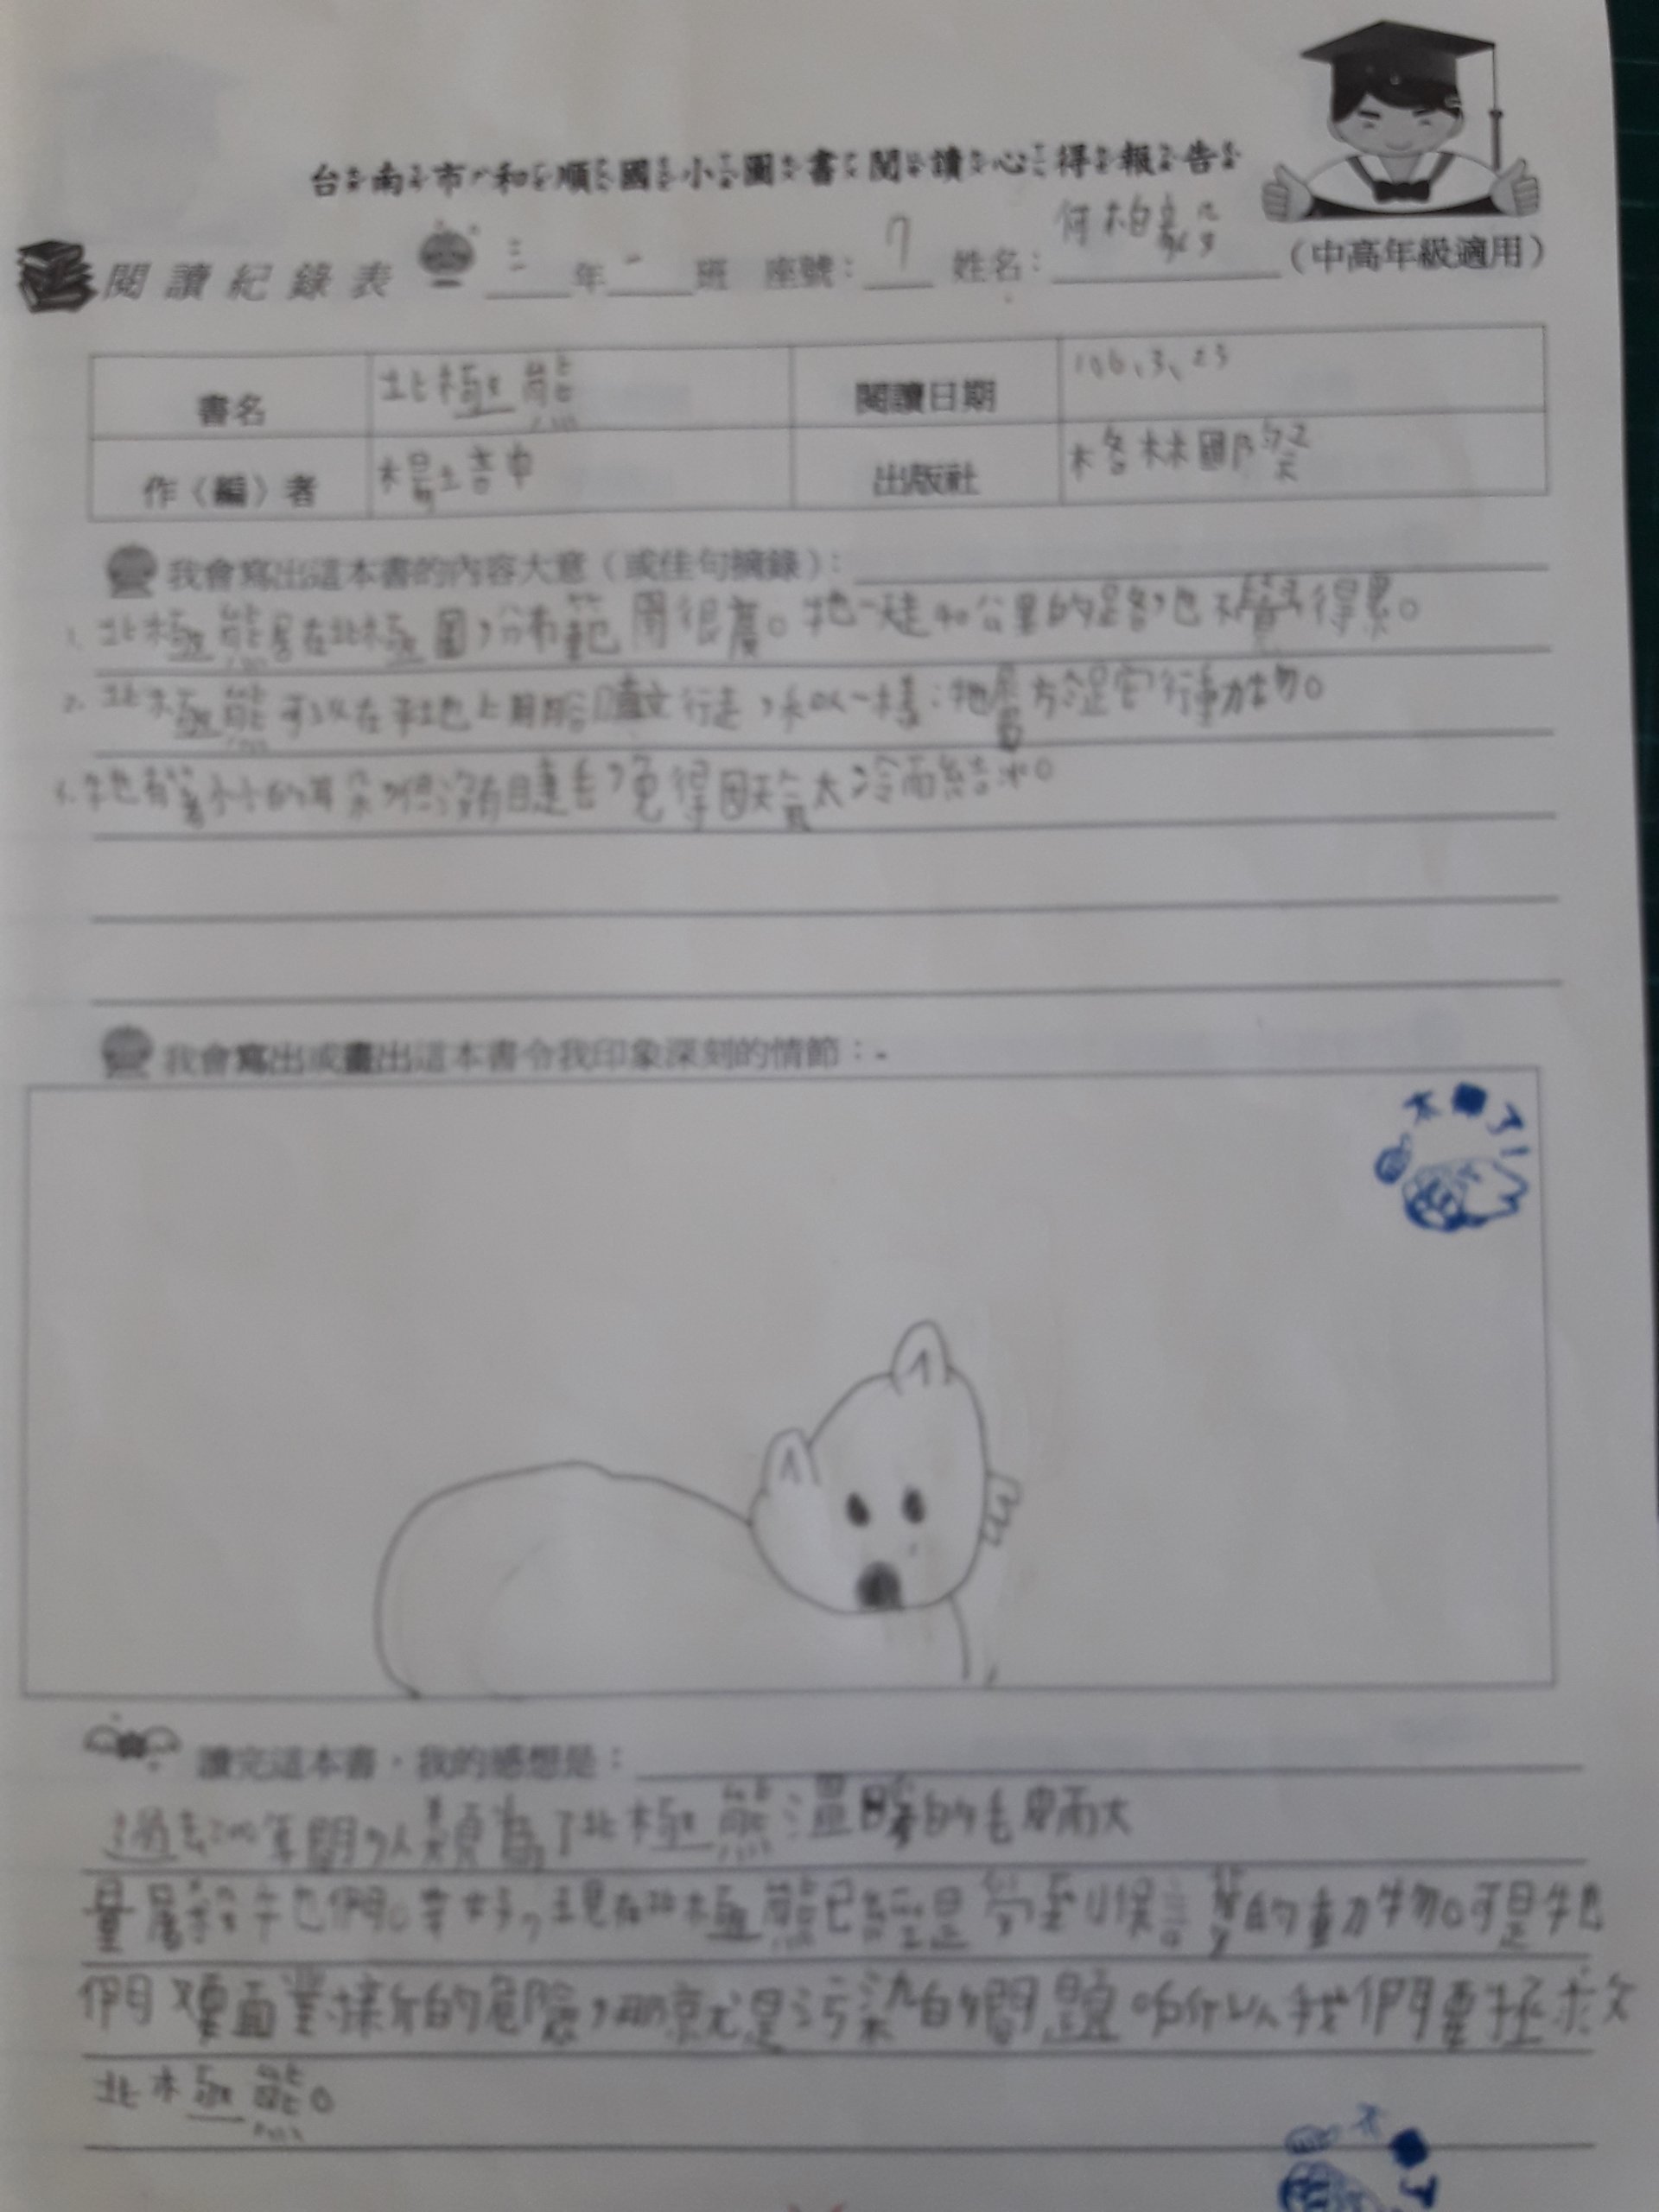 台南市和順國小圖書閱讀心得報告
閱讀紀錄表 三年一班 座號：7 姓名：何柏毅 （中高年級適用）
書名 北極熊 閱讀日期 106、3、23
作〈編〉者 楊 出版社 格林國際
我會寫出這本書的內容大意（或佳句摘錄）：
1. 北極熊居在北極圈，分布範圍很廣。牠一走40公里的路，也不覺得累。
2. 北極熊可以在陸地上用 行走，永以一樣：牠屬 行動物。
牠有著小小的耳朵，但沒有睫毛，免得因天氣太冷而結冰。
我會寫出或畫出這本書令我印象深刻的情節：
太 了
讀完這本書，我的感想是：
過去200年間，人類為了北極熊溫暖的毛皮而大
量屠殺牠們。幸好，現在北極熊已經是受到保護的動物。可是牠
們還要面對其他的危險，那就是污染的問題。所以我們要拯救
北極熊。